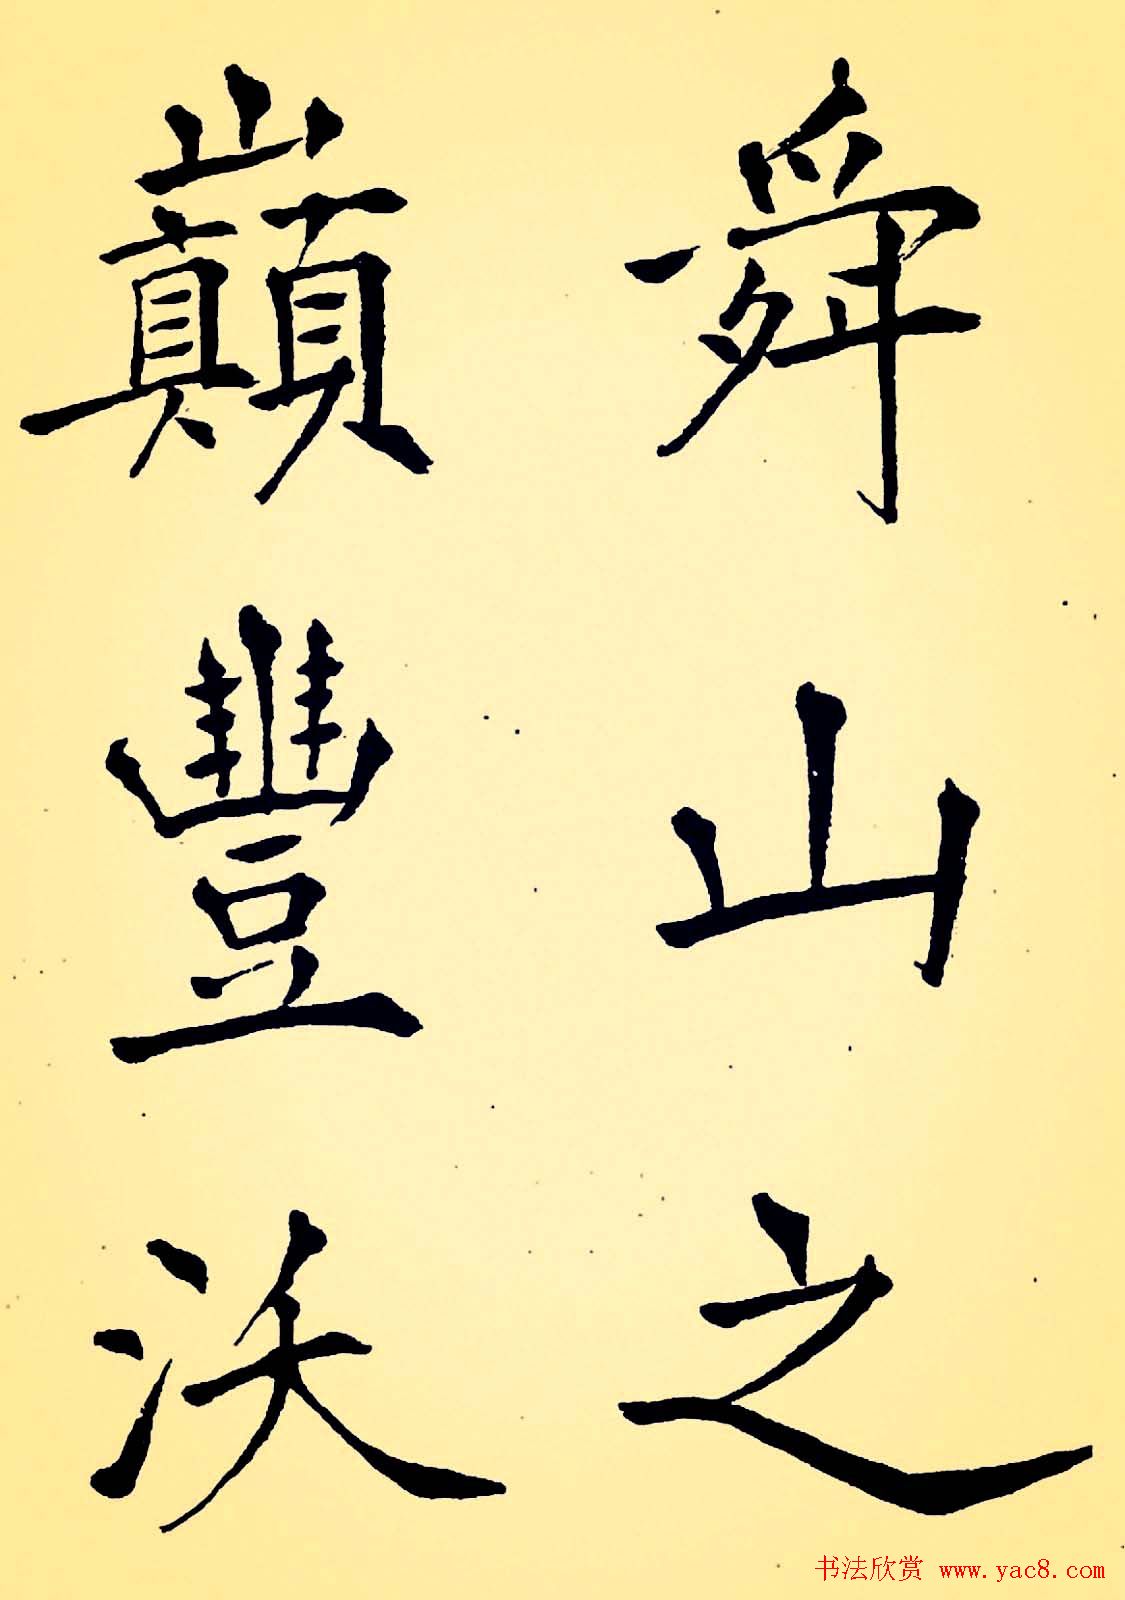 舜山之
巔豐沃
书法欣赏 www.yac8.com